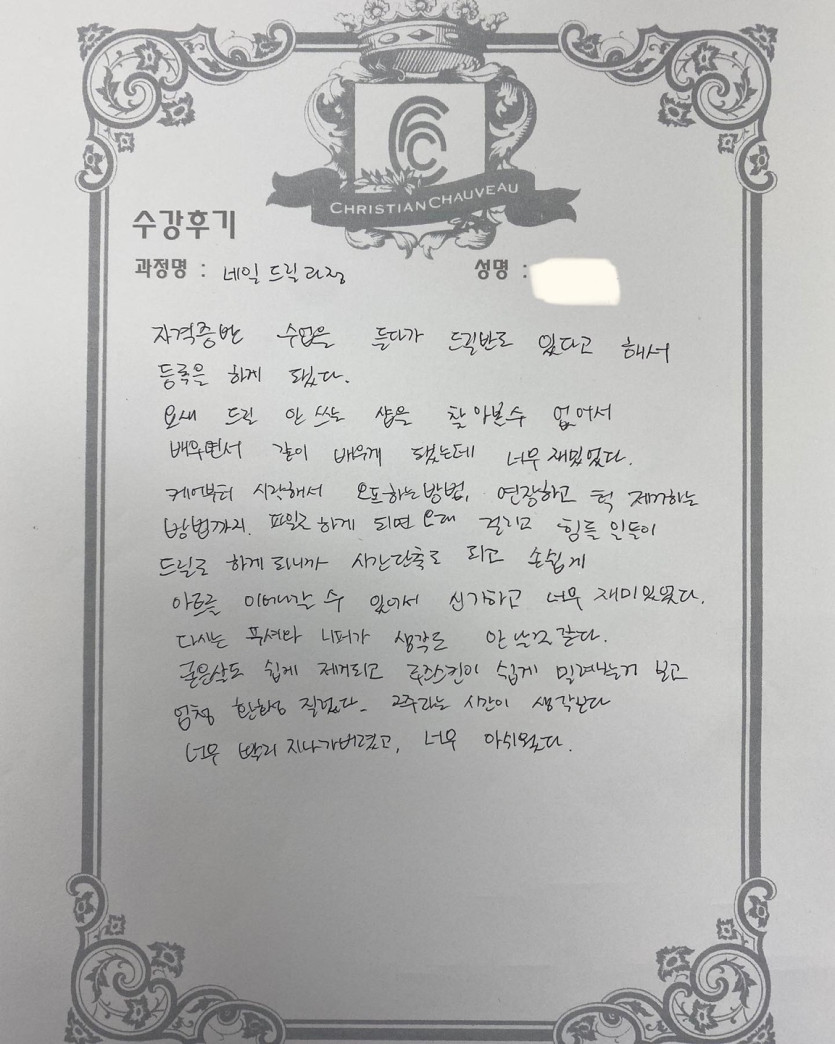 CHRISTIANCHAUVEAU
수강후기
과정명 : 네일 드릴 과정 성명 :
자격증반 수업을 듣다가 드릴반도 있다고 해서
등록을 하게 됐다.
요새 드릴 안 쓰는 샵을 찾아볼수 없어서
배우면서 같이 배우게 됐는데 너무 재밌었다.
케어부터 시작해서 오프하는방법, 연장하고 턱 제거하는
방법까지. 파일로 하게 되면 오래 걸리고 힘들 일들이
드릴로 하게 되니까 시간단축도 되고 손쉽게
아트를 이어나갈 수 있어서 신기하고 너무 재미있었다.
다시는 푸셔와 니퍼가 생각도 안 날것 같다.
굳은살도 쉽게 제거되고 루즈스킨이 쉽게 밀려나는거 보고
엄청 환호성 질렀다. 2주라는 시간이 생각보다
너무 빨리 지나가버렸고, 너무 아쉬웠다.